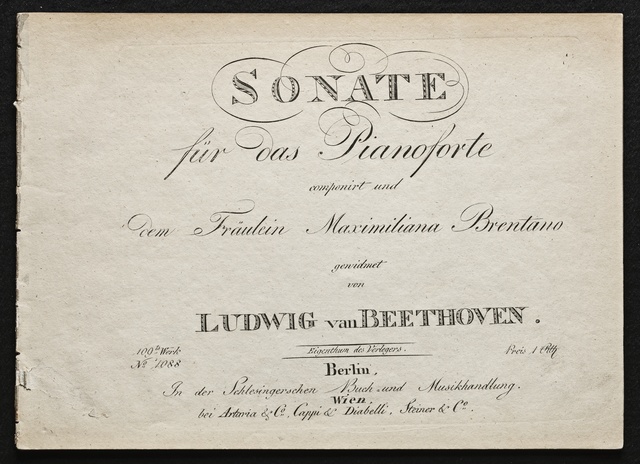 SONATE
für das Pianoforte
componirt und
dem Fräulein Maximiliana Brentano
gewidmet
von
LUDWIG van BEETHOVEN.
109ts Werk
Eigenthum des Verlegers.
Preis 1 Rth
No 1088
Berlin,
In der Schlesingerschen Buch und Musikhandlung.
Wien,
bei Artaria & Co. Cappi & Diabelli, Steiner & Co.